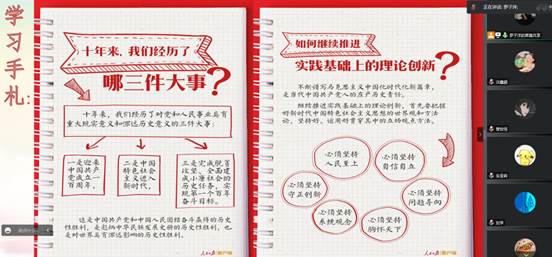 学习手札:
十年来，我们经历了
哪三件大事?
十年来，我们经历了对党和人民事业具有
重大现实意义和深远历史意义的三件大事：
一是迎来
中国共产
党成立一
百周年，
二是中国
特色社会
主义进入
新时代，
三是完成脱贫
攻坚、全面建
成小康社会的
历史任务，实
现第一个百年
奋斗目标。
这是中国共产党和中国人民团结奋斗赢得的历史
性胜利，是彪炳中华民族发展史册的历史性胜利，也
是对世界具有深远影响的历史性胜利。
人民日报 客户端
如何继续推进
实践基础上的理论创新?
不断谱写马克思主义中国化时代化新篇章，
是当代中国共产党人的庄严历史责任。
继续推进实践基础上的理论创新，首先要把握
好新时代中国特色社会主义思想的世界观和方法
论，坚持好、运用好贯穿其中的立场观点方法，
必须坚持
人民至上
必须坚持
自信自立
必须坚持
守正创新
必须坚持
问题导向
必须坚持
系统观念
必须坚持
胸怀天下
人民日报 客户端
正在讲话: